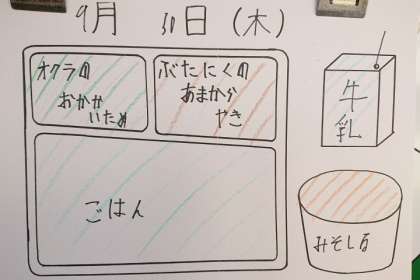 9月 30日(木)
オクラの
おかか
いため
ぶたにくの
あまから
やき
牛
乳
ごはん
みそしる